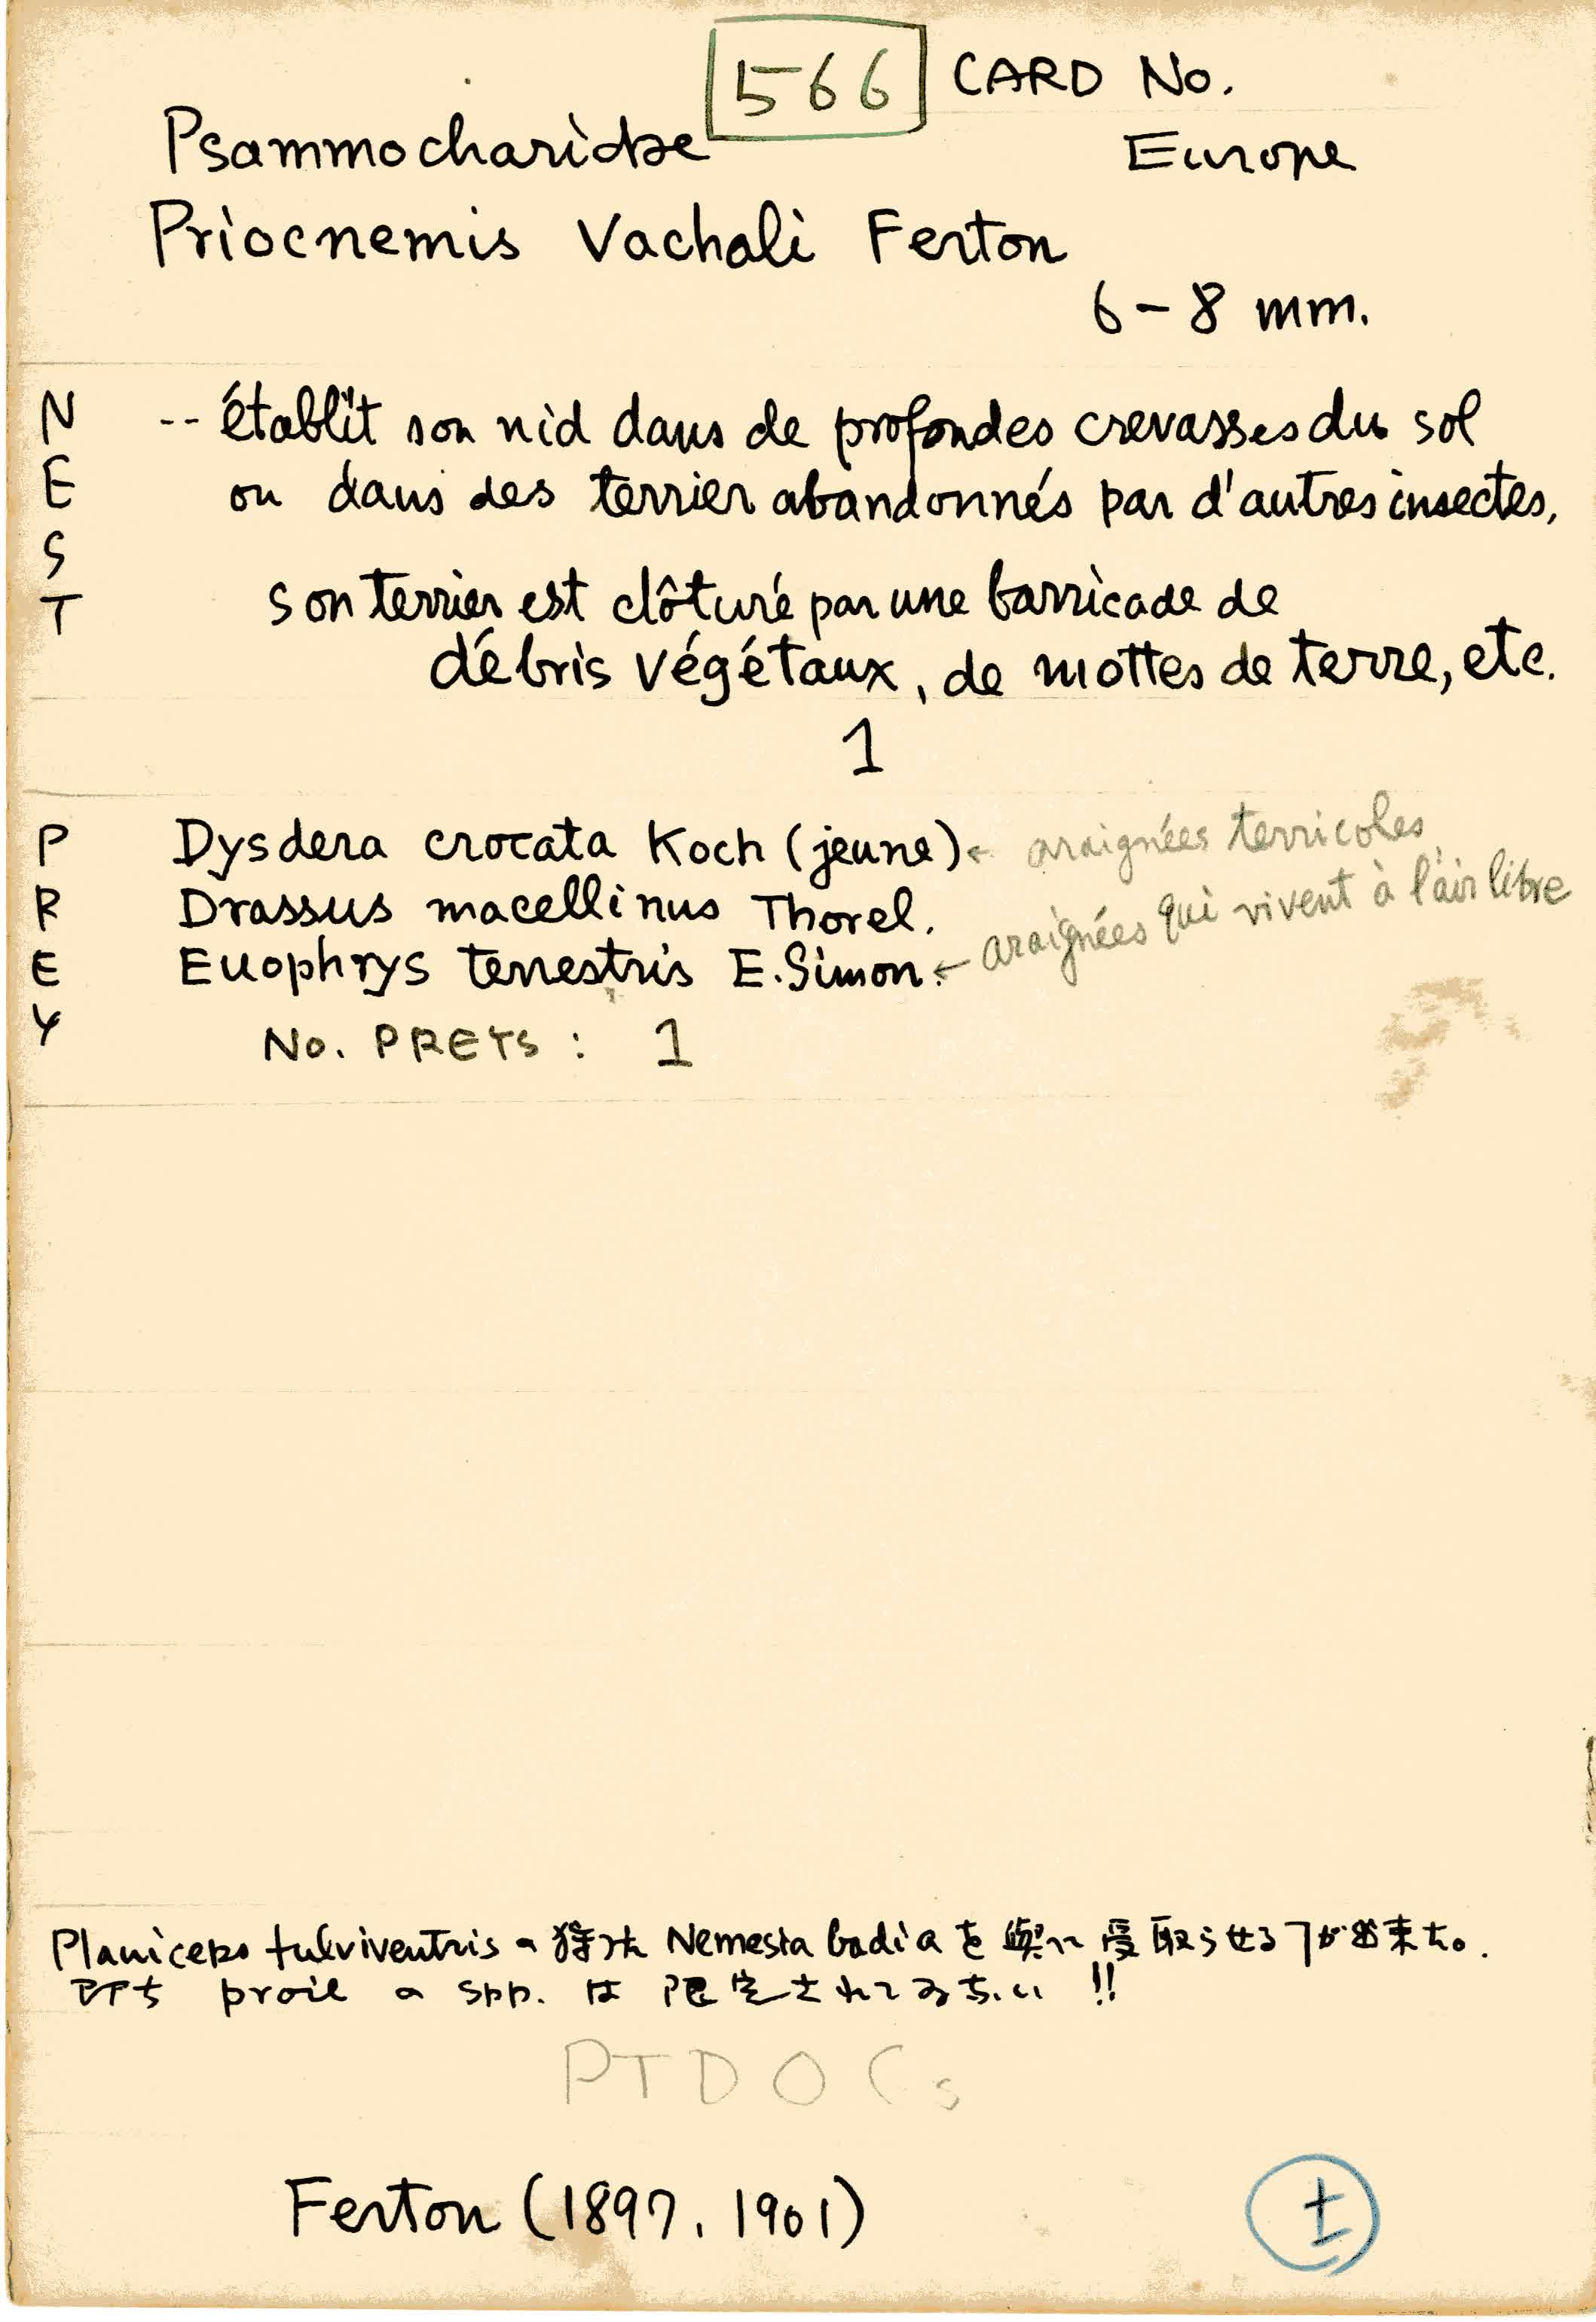 566 CARD No.
Psammocharidae Europe
Priocnemis Vachali Ferton
6-8 mm.
NEST
-- établit son nid dans de profondes crevasses du sol
ou dans des terrier abandonnés par d'autres insectes,
son terrier est clôturé par une barricade de
débris végétaux, de mottes de terre, etc.
1
PREY
Dysdera crocata Koch (jeune) ← araignées terricoles
Drassus macellinus Thorel.
Euophrys terrestris E. Simon. ← araignées qui vivent à l'air libre
No. PREYS : 1
Planiceps fulviventris の狩った Nemesia badia を與へ受取らせるヿが出来た。
即ち proie の spp. は限定されてゐない !!
PTDOCs
Ferton (1897, 1901)
±